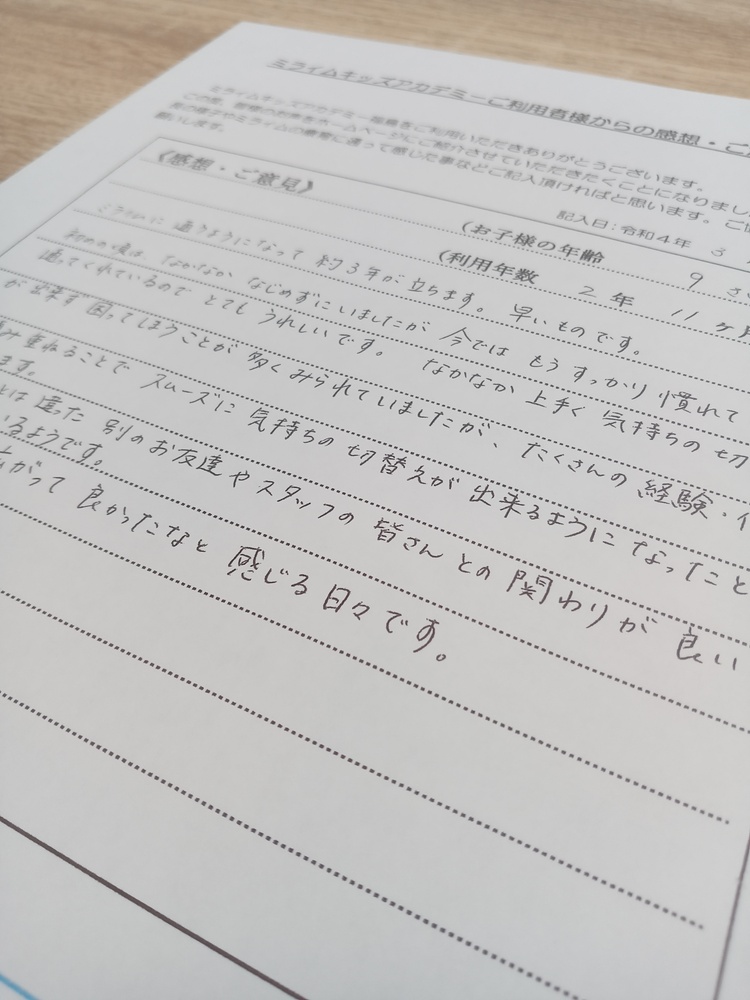 ミライムキッズアカデミーご利用者様からの感想・ご
ミライムキッズアカデミー福島をご利用いただきありがとうございます。
この度、皆様のお声をホームページにご紹介させていただきたくことになりまし
の様子やミライムの療育に通って感じた事などご記入頂ければと思います。ご
願いします。
記入日:令和4年 3
《感想・ご意見》
(お子様の年齢 9 さ
(利用年数 2 年 11 ヶ月
ミライムに 通うようになって 約3年が 立ちます。 早い ものです。
初めの頃は、なかなか なじめずに いましたが 今では もう すっかり 慣れて
通ってくれているので とても うれしいです。 なかなか 上手く 気持ちの 切
が 出来ず 困ってしまうことが 多く みられて いましたが、たくさんの 経験・
み重ねることで スムーズに 気持ちの 切替えが 出来るようになったこと
ます。
とは 違った 別の お友達や スタッフの 皆さん との 関わりが 良い
いるようです。
がって 良かったなと 感じる 日々です。